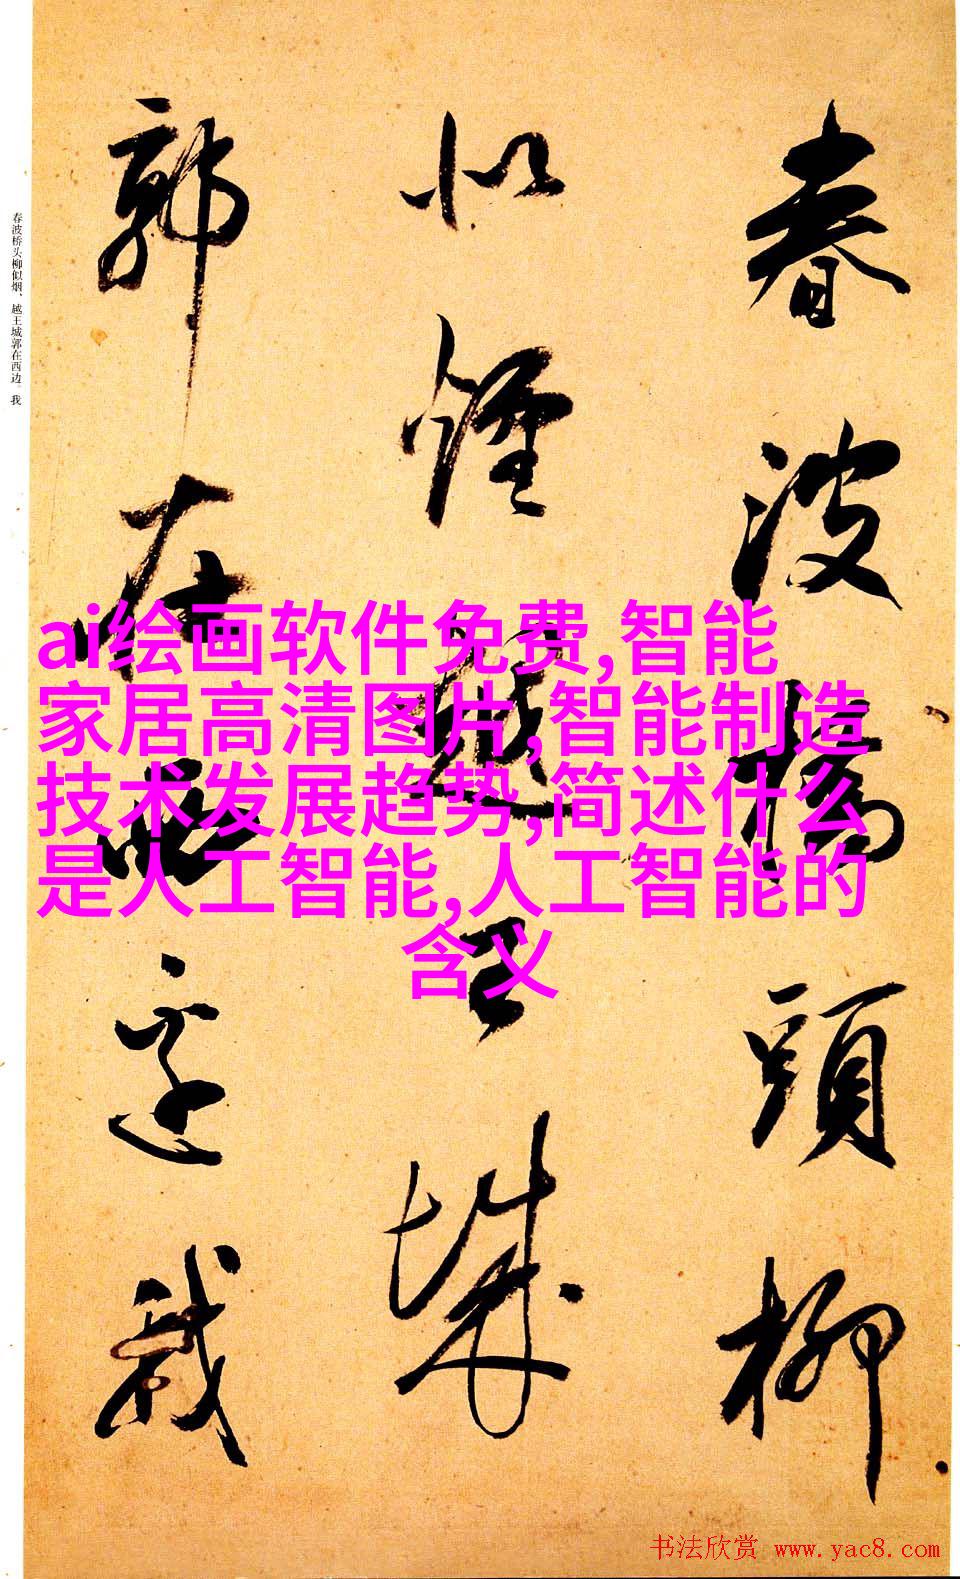 春波橋頭柳
似煙越王城
郭在西邊我
春波桥头柳似烟、越王城郭在西边。我
ai绘画软件免费,智能
家居高清图片,智能制造
技术发展趋势,简述什么
是人工智能,人工智能的
含义
书法欣赏 www.yac8.com